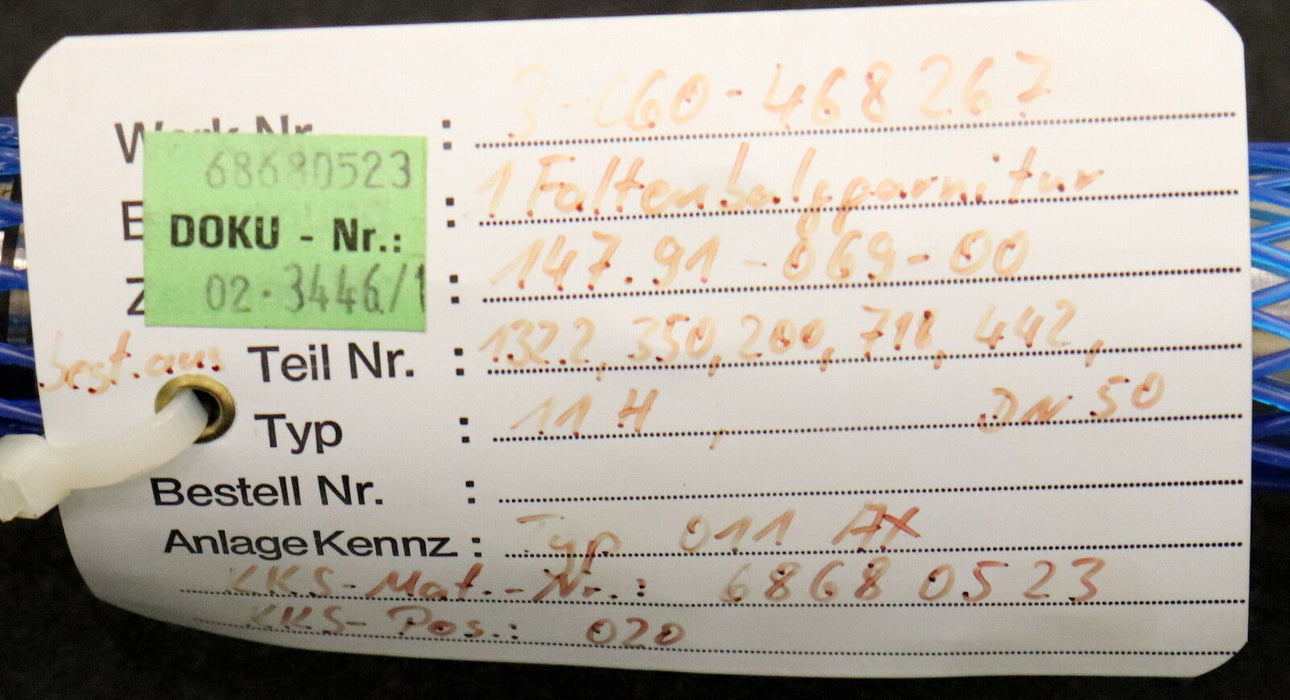 Werk Nr. : 3-C60-468267
: 1 Faltenbalgparnitur
68680523
DOKU - Nr.:
02.3446/1
: 147.91-069-00
best. aus Teil Nr. : 1322, 350, 200, 718, 442,
Typ : 11 H , DN 50
Bestell Nr. :
Anlage Kennz : Typ 011 AX
KKS-Mat.-Nr.: 68680523
KKS-Pos.: 020